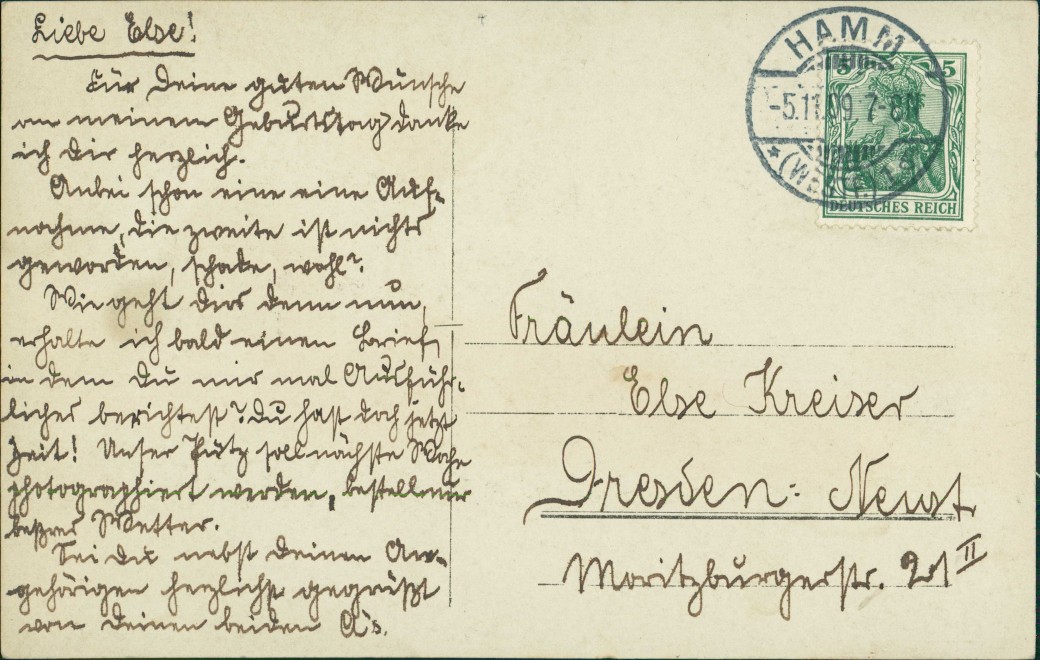 Liebe Else!
Für Deine guten Wünsche
an meinem Geburtstag danke
ich Dir herzlich.
Anbei schon eine eine Auf-
nahme, die zweite ist nichts
geworden, schade, wohl?
Wie geht Dirs denn nun,
erhalte ich bald einen Brief,
in dem Du mir mal Ausführ-
liches berichtest? Du hast doch jetzt
Zeit! Unser Putz soll nächste Woche
photographiert werden, bestell nur
beßres Wetter.
Sei Du nebst Deinen An-
gehörigen herzlichst gegrüßt
von Deinen beiden A's.
HAMM
-5.11.09.7-8N
*(WESTF.)1
5 5
DEUTSCHES REICH
Fräulein
Else Kreiser
Dresden-Neust.
Moritzburgerstr. 21 II